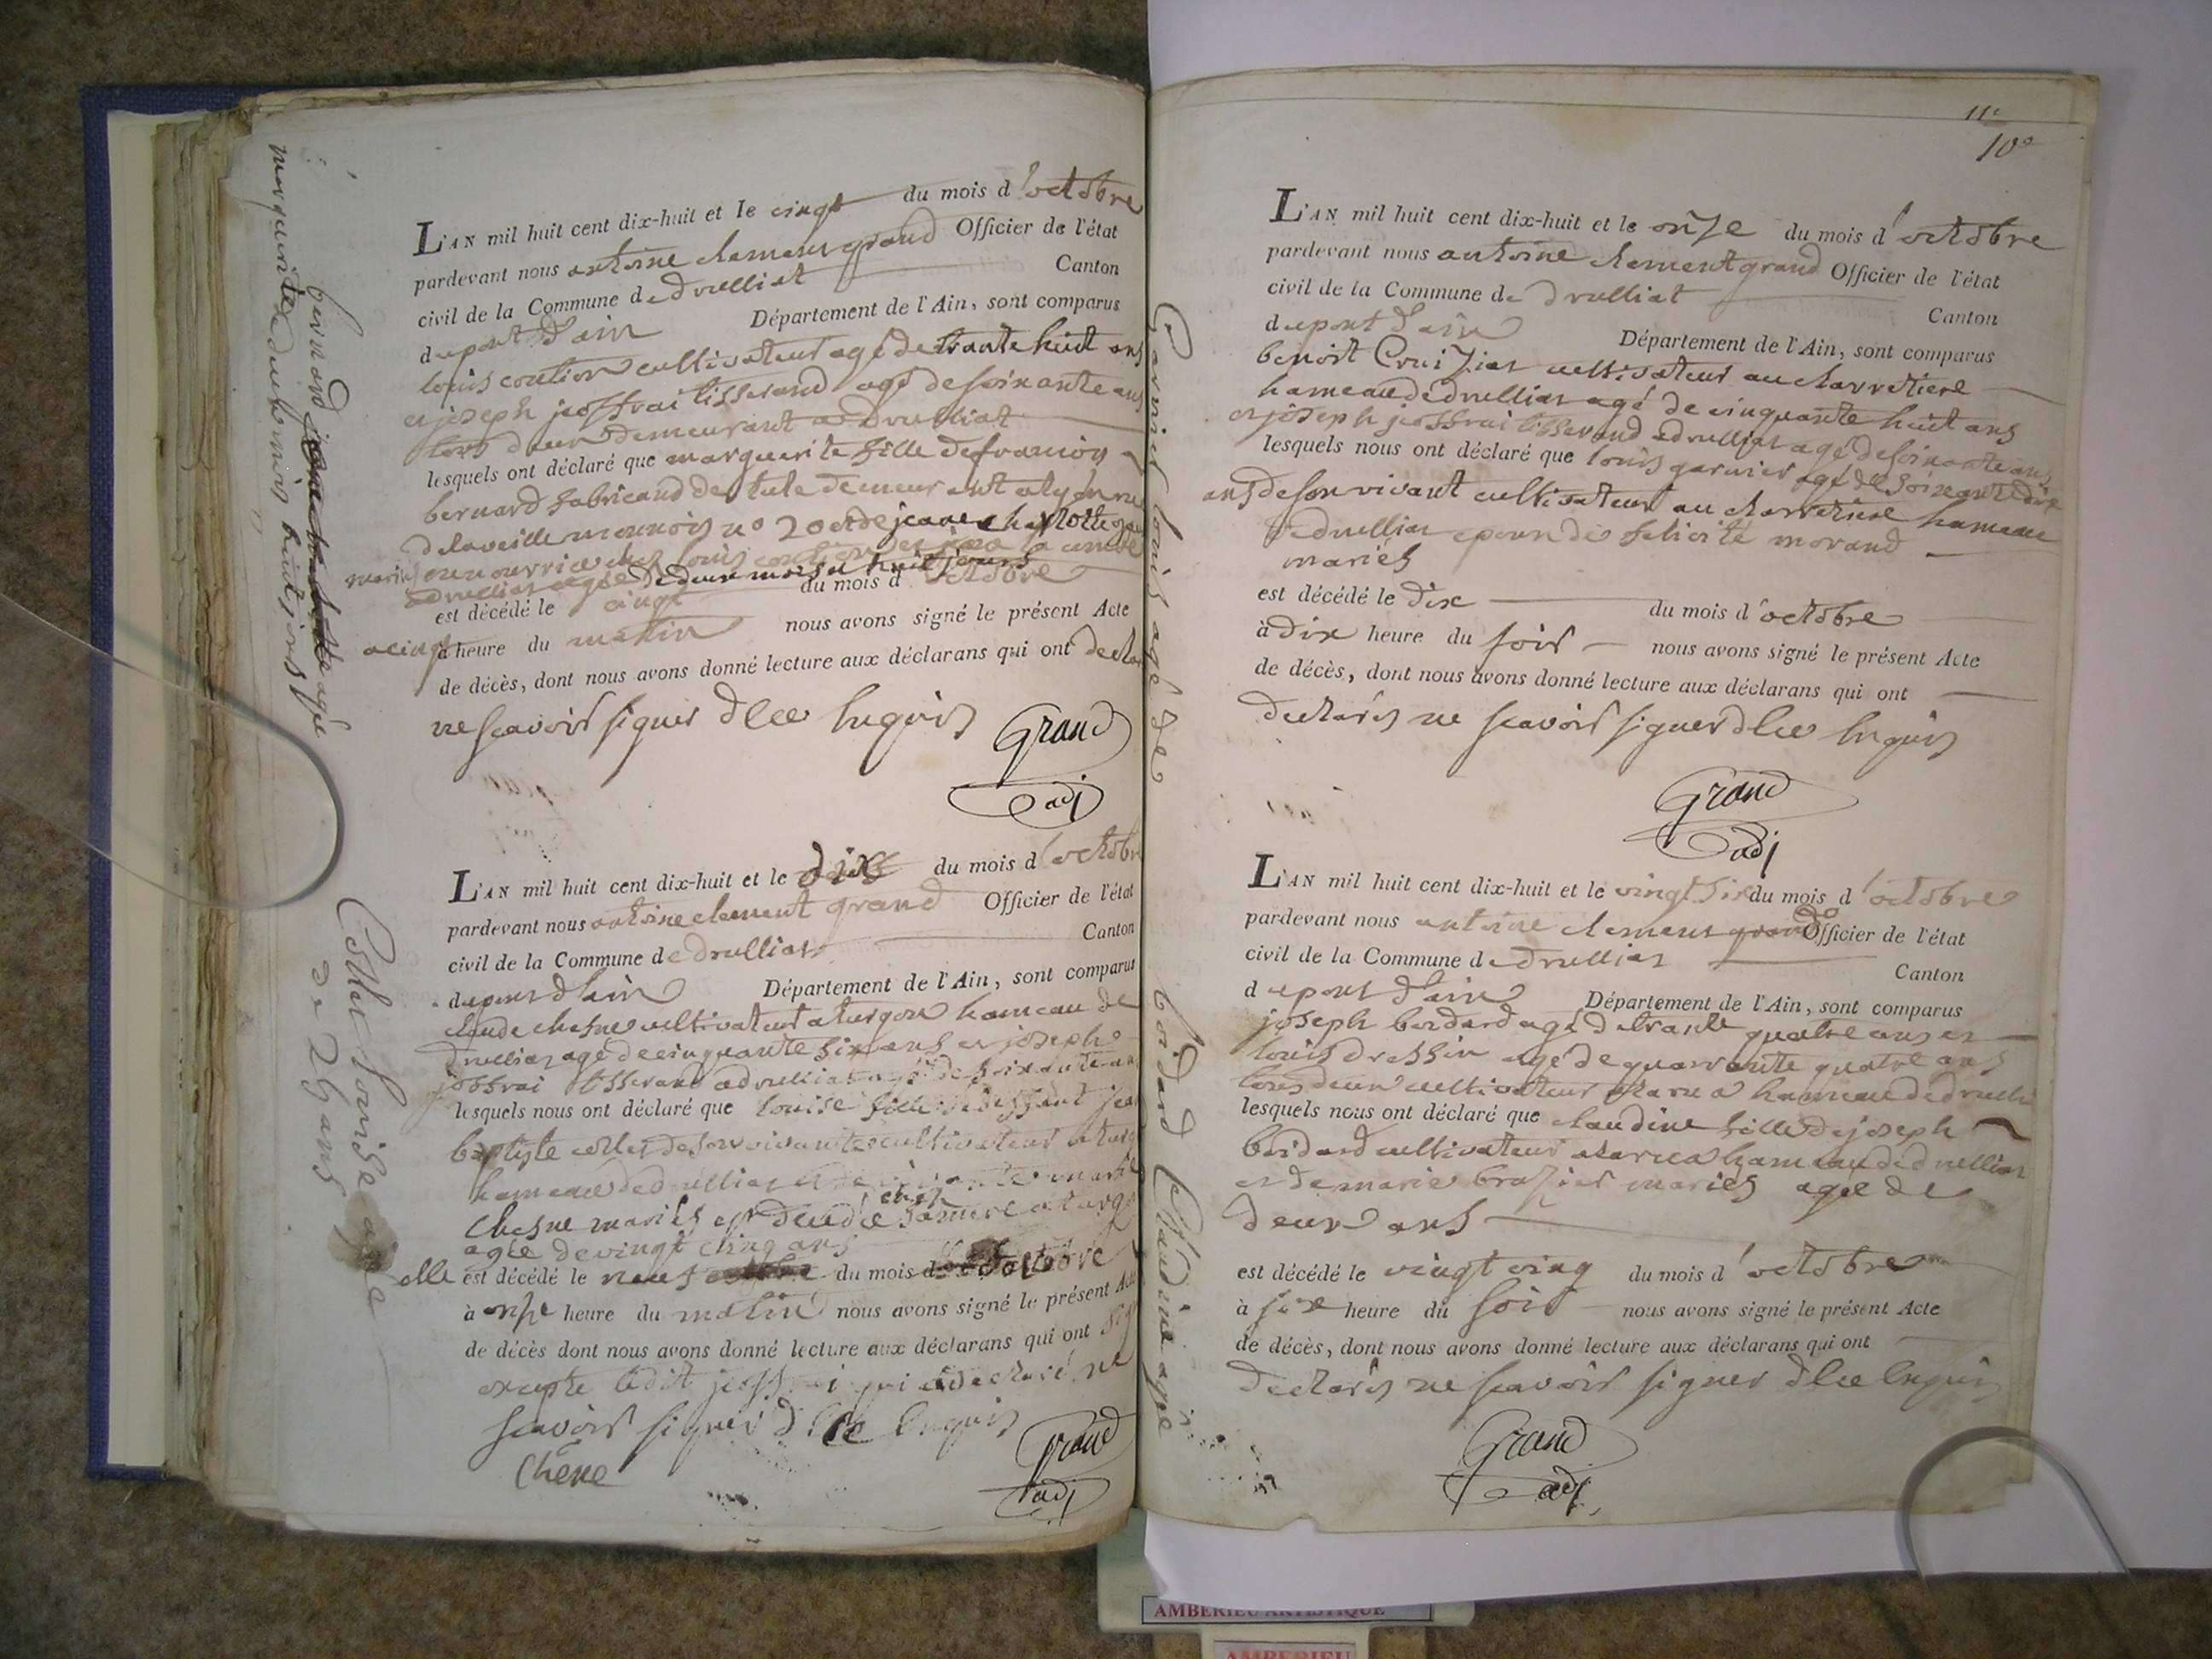 L'AN mil huit cent dix-huit et le cinqt du mois d'octobre
pardevant nous antoine clement grand Officier de l'état
civil de la Commune de druilliat Canton
dupont d'ain Département de l'Ain, sont comparus
louis coulion cultivateur agé de trante huit ans
et joseph jeoffrai tisserand agé de soixante ans
tous deux demeurant a druilliat
lesquels ont déclaré que marguerite fille de francois
bernard fabricand de tule demeurant a lyon rue
de la veille monnois no 20 et de jeanne charlotte
mariés en nourrice chez louis
a druillias agée de deux mois et huit jours
est décédé le cinqt du mois d'octobre
a cinq heure du matin nous avons signé le présent Acte
de décès, dont nous avons donné lecture aux déclarans qui ont declaré
ne scavoir signer de ce enquis
Grand
adj
bernard agée
marguerite de deux mois huit jours
L'AN mil huit cent dix-huit et le dix du mois d'octobre
pardevant nous antoine clement grand Officier de l'état
civil de la Commune de druillias Canton
dupont d'ain Département de l'Ain, sont comparus
claude chesne cultivateur a turgon hameau de
druillias agé de cinquante six ans et joseph
joffrai tisserand a druillias agé de soixante ans
lesquels nous ont déclaré que louise fille de deffunt jean
baptiste collet de son vivant cultivateur a turgon
hameau de druillias et de vivante
chesne mariés est decedée chez sa mere a turgon
agée de vingt cinq ans
elle est décédé le neuf du mois d'octobre
à onze heure du matin nous avons signé le présent Acte
de décès dont nous avons donné lecture aux déclarans qui ont signé
excepte ledit jeoffrai qui a declaré ne
scavoir signer de ce enquis
Chene
Grand
adj
Collet louise agée
de 25 ans
11e
10e
L'AN mil huit cent dix-huit et le onze du mois d'octobre
pardevant nous antoine clement grand Officier de l'état
civil de la Commune de druilliat Canton
dupont d'ain Département de l'Ain, sont comparus
benoit Cruiziat cultivateur au charretiere
hameau de druillias agé de cinquante huit ans
et joseph jeoffrai tisserand a druillias agé de soixante ans
lesquels nous ont déclaré que louis garnier agé de soixante dix
ans de son vivant cultivateur au charretiere hameau
de druillias epoux de felicité morand
mariés
est décédé le dix du mois d'octobre
à dix heure du soir nous avons signé le présent Acte
de décès, dont nous avons donné lecture aux déclarans qui ont
declarés ne scavoir signer de ce enquis
Grand
adj
Garnier louis agé de
L'AN mil huit cent dix-huit et le vingt six du mois d'octobre
pardevant nous antoine clement grand Officier de l'état
civil de la Commune de druillias Canton
dupont d'ain Département de l'Ain, sont comparus
joseph bordard agé de trante quatre ans et
louis dressin agé de quarante quatre ans
tous deux cultivateur a hameau de druillias
lesquels nous ont déclaré que claudine fille de joseph
bordard cultivateur a hameau de druillias
et de marie brazier mariés agée de
deux ans
est décédé le vingt cinq du mois d'octobre
à six heure du soir nous avons signé le présent Acte
de décès, dont nous avons donné lecture aux déclarans qui ont
declarés ne scavoir signer de ce enquis
Grand
adj
bordard Claudine agée
AMBERIEU ARTISTIQUE
AMBERIEU